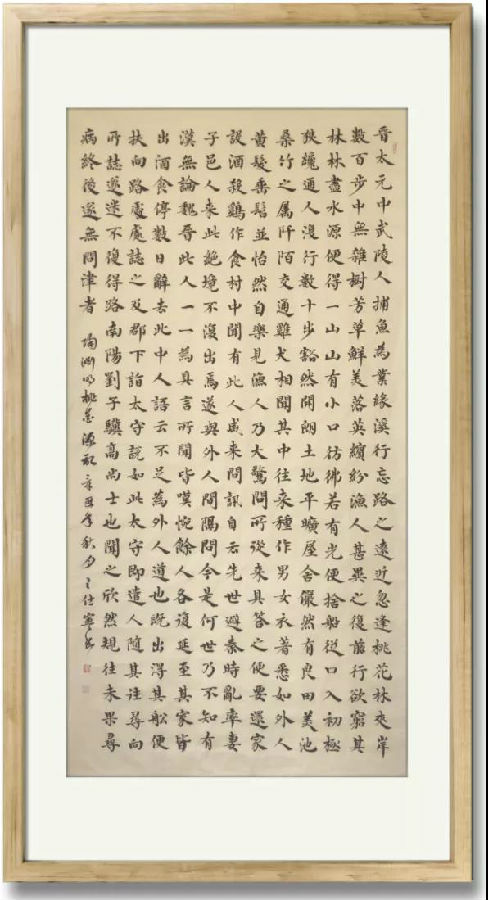 晉太元中武陵人捕魚為業緣溪行忘路之遠近忽逢桃花林夾岸
數百步中無雜樹芳草鮮美落英繽紛漁人甚異之復前行欲窮其
林林盡水源便得一山山有小口彷彿若有光便捨船從口入初極
狹纔通人復行數十步豁然開朗土地平曠屋舍儼然有良田美池
桑竹之屬阡陌交通雞犬相聞其中往來種作男女衣著悉如外人
黃髮垂髫並怡然自樂見漁人乃大驚問所從來具答之便要還家
設酒殺雞作食村中聞有此人咸來問訊自云先世避秦時亂率妻
子邑人來此絕境不復出焉遂與外人間隔問今是何世乃不知有
漢無論魏晉此人一一為具言所聞皆嘆惋餘人各復延至其家皆
出酒食停數日辭去此中人語云不足為外人道也既出得其船便
扶向路處處誌之及郡下詣太守說如此太守即遣人隨其往尋向
所誌遂迷不復得路南陽劉子驥高尚士也聞之欣然規往未果尋
病終後遂無問津者 陶淵明桃花源記 辛丑年秋月